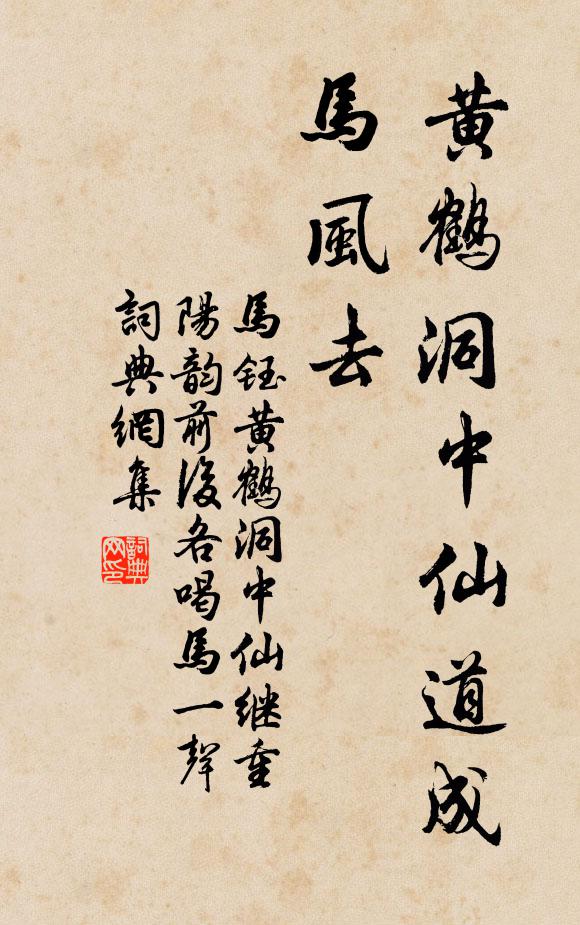 黄鶴洞中仙道成
馬風去
馬鈺黄鶴洞中仙继重
陽韵前後各喝馬一聲
詞典網集
詞典
网印